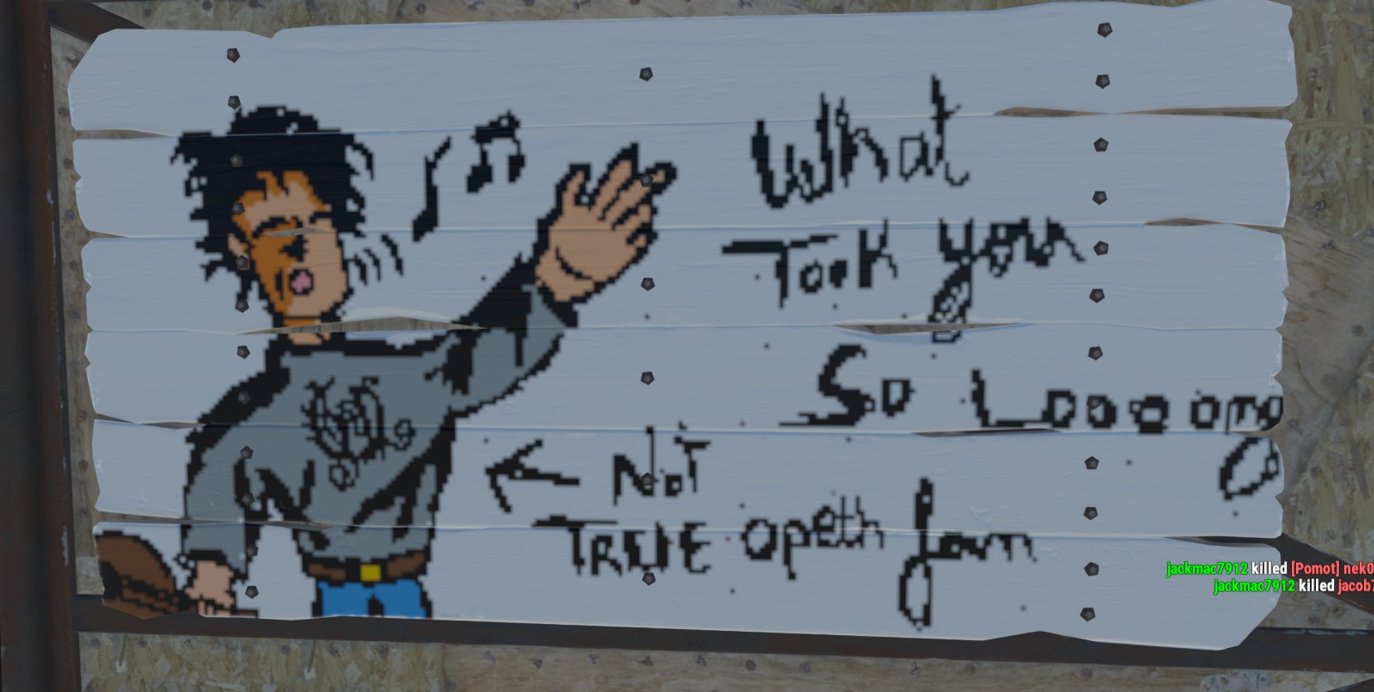 What
Took you
So Loooong
← Not
TRUE opeth fan
jackmac7912 killed [Pomot] nek0
jackmac7912 killed jacob7